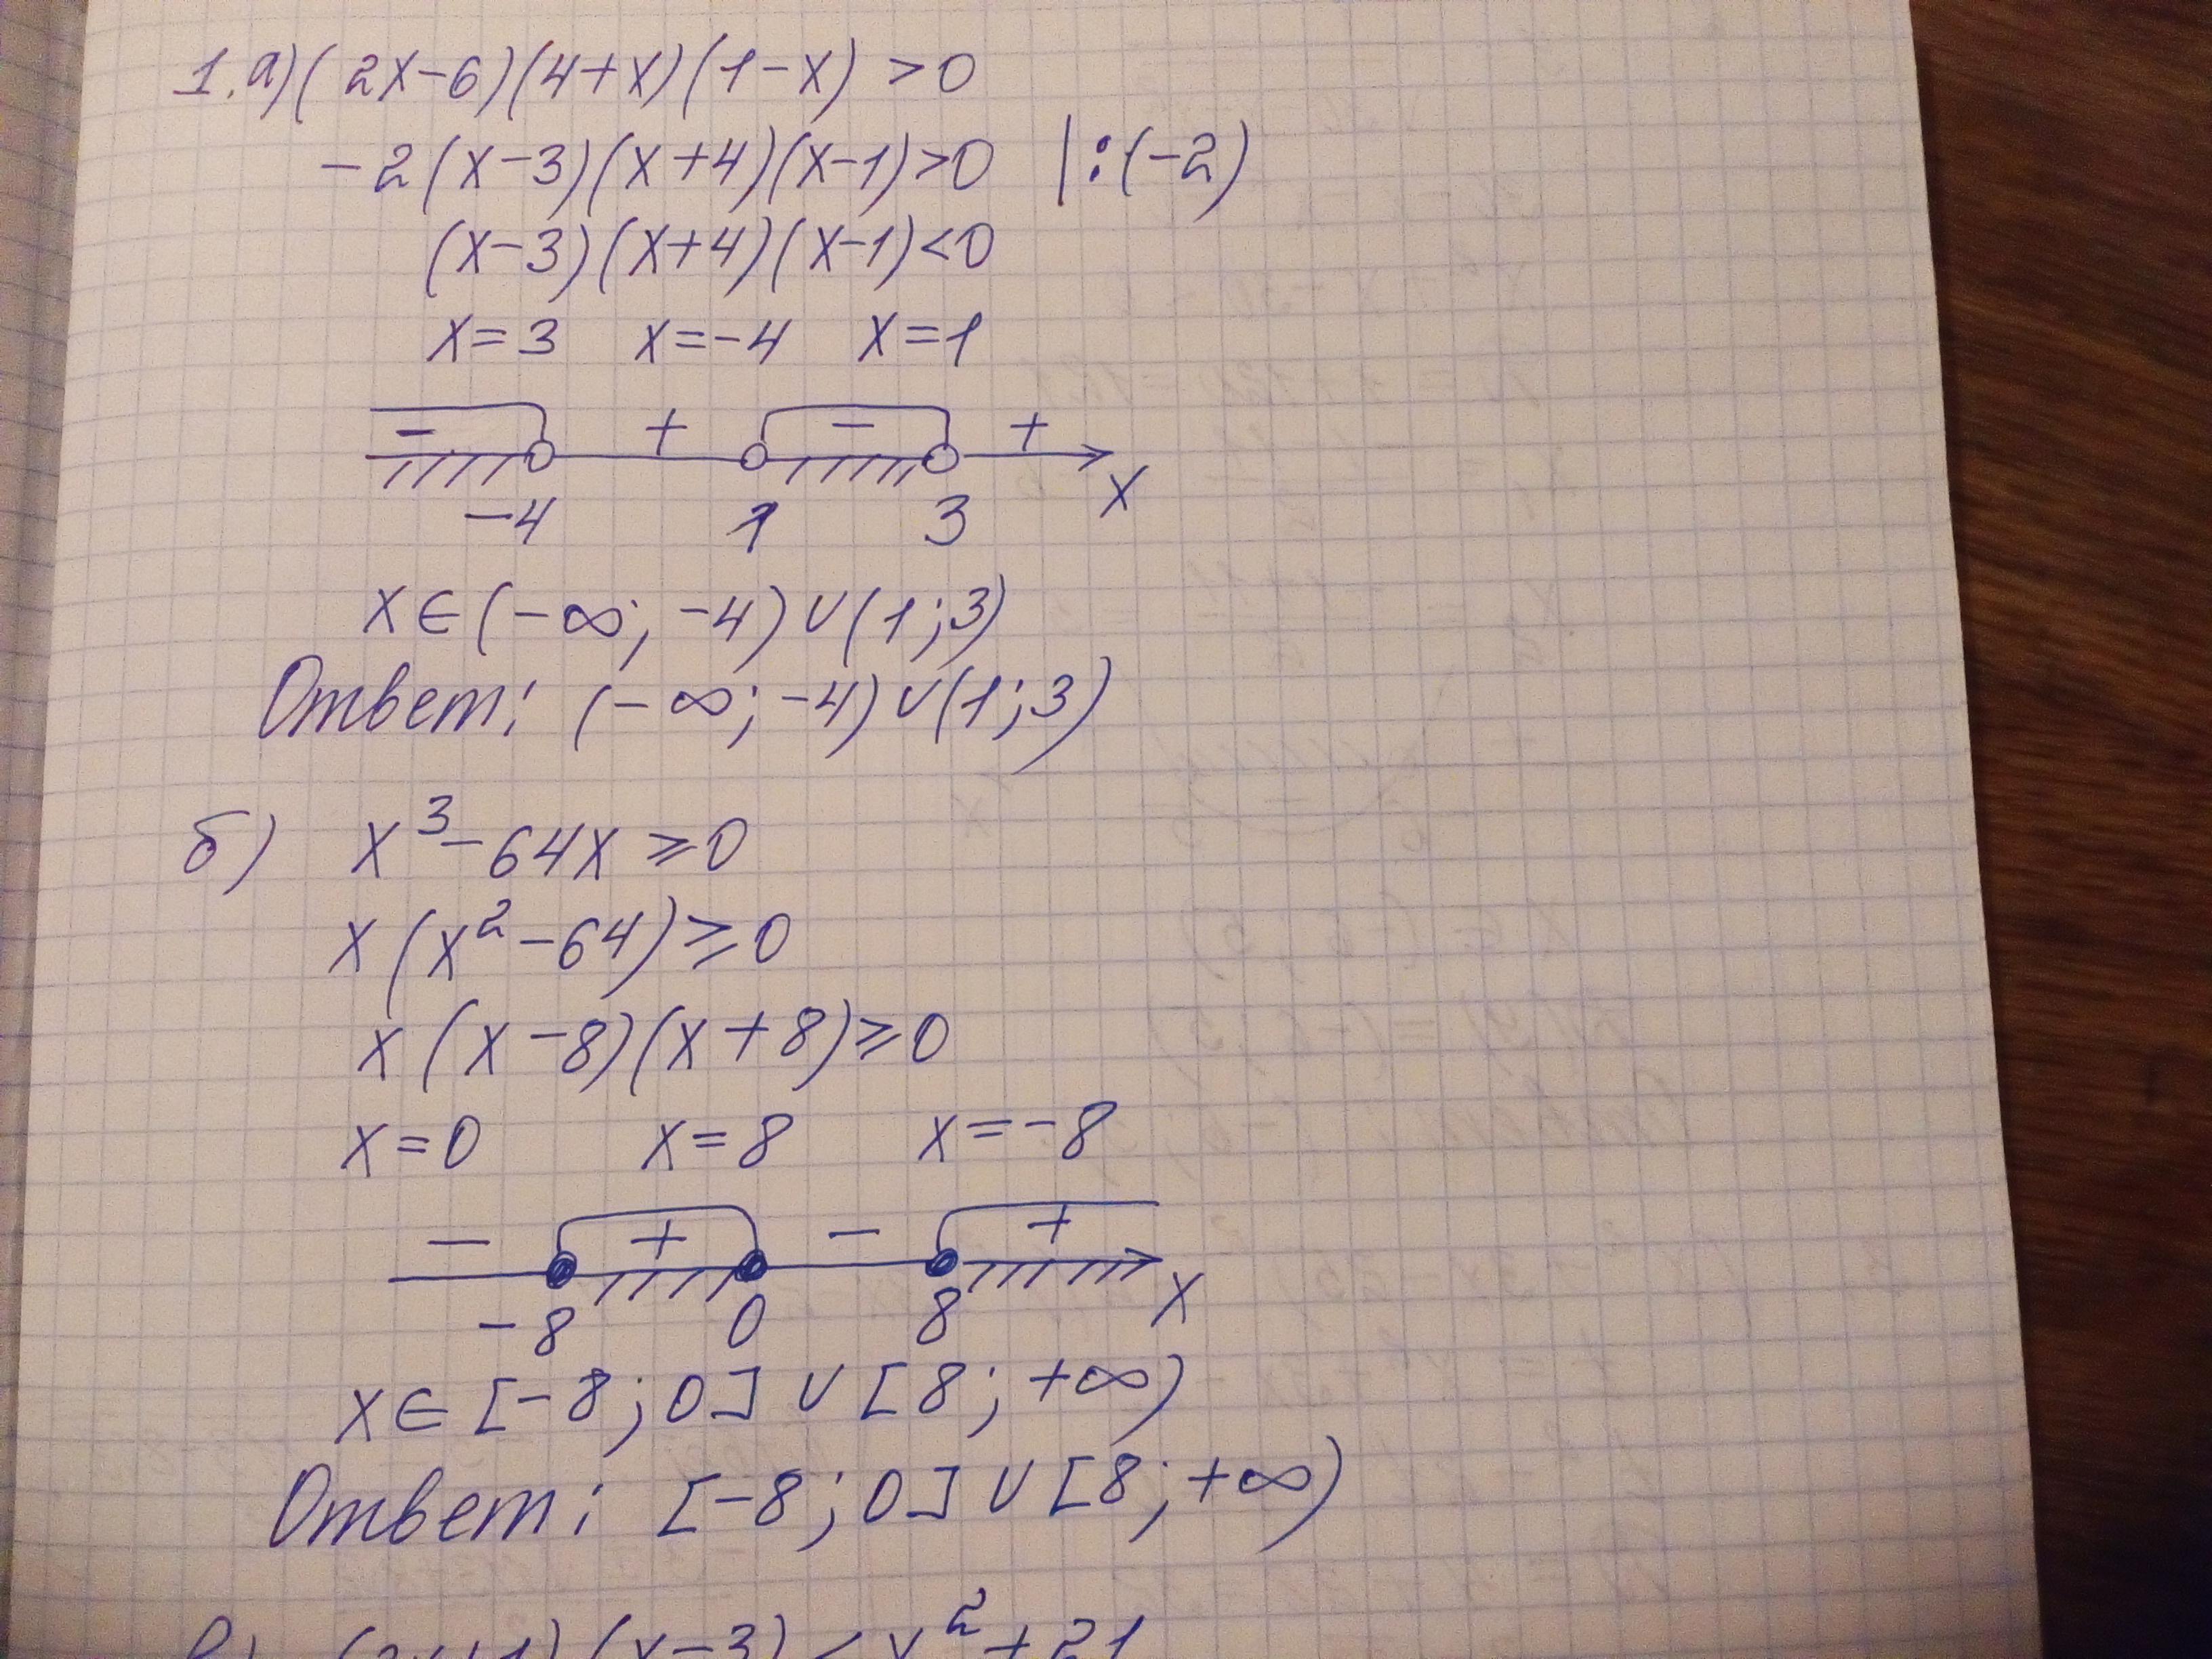 1. а) (2x-6)(4+x)(1-x) >0
-2(x-3)(x+4)(x-1)>0 |:(-2)
(x-3)(x+4)(x-1)<0
x=3 x=-4 x=1
- + - +
-4 1 3 x
x∈(-∞; -4)∪(1;3)
Ответ: (-∞; -4)∪(1;3)
б) x³-64x≥0
x(x²-64)≥0
x(x-8)(x+8)≥0
x=0 x=8 x=-8
- + - +
-8 0 8 x
x∈[-8;0]∪[8;+∞)
Ответ: [-8;0]∪[8;+∞)
в) (2x+1)(x-3)<x²+21